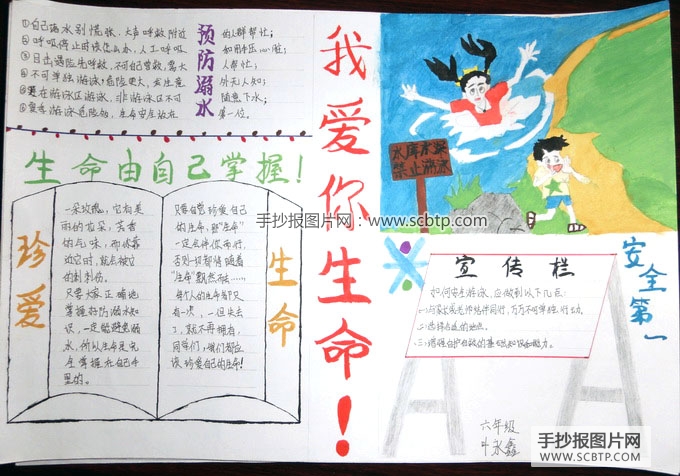 ①自己溺水别慌张,大声呼救附近的人群帮忙;
②呼吸停止时该怎么办,人工呼吸和用挤压心脏;
③目击遇险先呼救,不可自营救,需大人帮忙;
④不可单独游泳,危险更大,发生意外无人知;
⑤更在游泳区游泳,非游泳区不可随意下水;
⑥夏季游泳危险多,生命安全放在第一位。
预防溺水
生命由自己掌握!
珍爱
一朵玫瑰,它有美
丽的花朵,芳香
的气味,而你靠
近它时,就会被它
的刺刺伤。
只要大家正确地
掌握好防溺水知
识,一定能避免溺
水,所以生命是完
全掌握在自己手
里的。
只要自觉珍爱自己
的生命,那“生命”
一定会伴你而行,
否则犯错请随着
“生命”飘然而去……
每个人的生命都只
有一次,一但失去
了,就不再拥有,
同学们,我们都应
该珍爱自己的生命!
生命
我爱你生命!
水库水深
禁止游泳
手抄报图片网:www.scbtp.com
安全第一
宣传栏
如何安全游泳,应做到以下几点:
一:与家长或老师结伴同行,万万不可单独行动。
二:选择合适的地点。
三:增强自护自救的基础知识和能力。
六年级
叶永鑫
手抄报图片网
WWW.SCBTP.COM